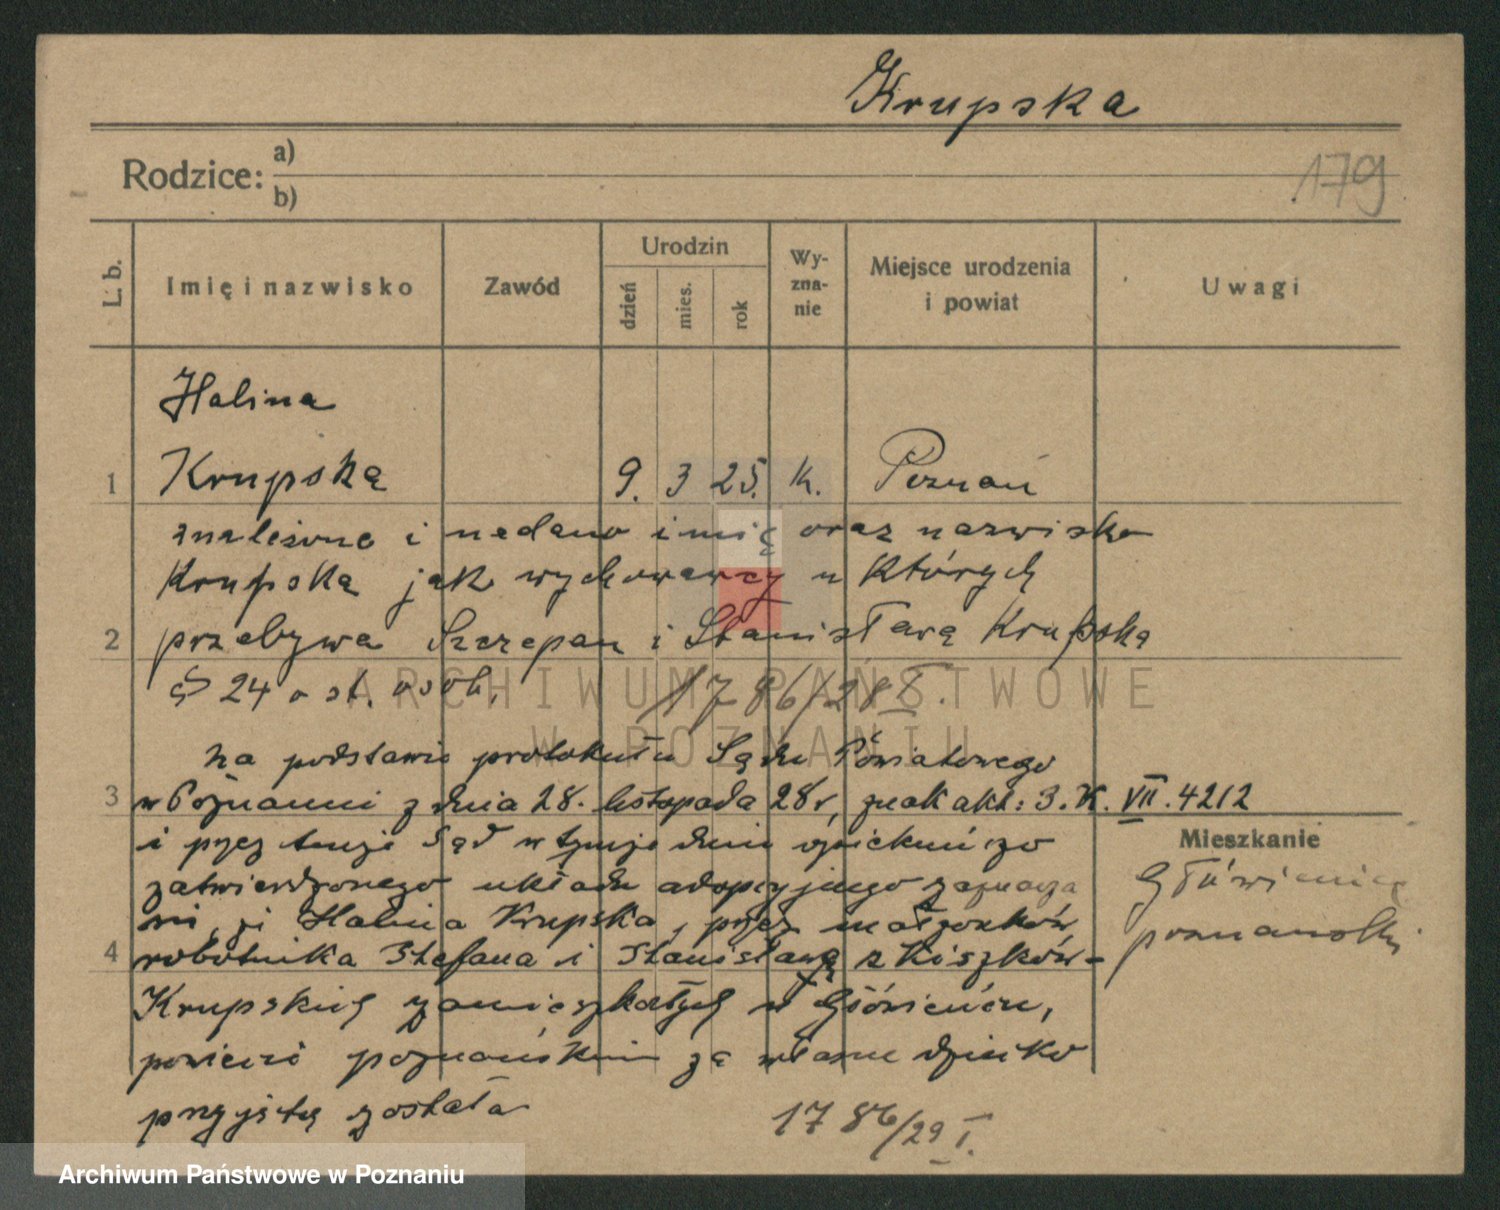 Krupska
Rodzice: a)
b)
179
L. b.
Imię i nazwisko
Zawód
Urodzin
dzień
mies.
rok
Wy-
zna-
nie
Miejsce urodzenia
i powiat
Uwagi
Halina
1 Krupska 9. 3 25. k. Poznań
znaleziono i nadano imię oraz nazwisko
Krupska jak wychowawcy u których
2 przebywa Szczepan i Stanisława Krupska
§ 24 o st. osob. 1786/28 I.
Na podstawie protokułu Sądu Powiatowego
3 w Poznaniu z dnia 28. listopada 28 r, znak akt: 3. K. VII. 4212
i przez tenże Sąd w tymże dniu opiekuńczo
zatwierdzonego układu adopcyjnego zaznacza
się, że Halina Krupska, przez małżonków
4 robotnika Stefana i Stanisławę z Kiszków-
Krupskich zamieszkałych w Głównieńcu,
powiecie poznańskim za własne dziecko
przyjętą została
1786/29 I.
Mieszkanie
poznański
ARCHIWUM PAŃSTWOWE
W POZNANIU
Archiwum Państwowe w Poznaniu